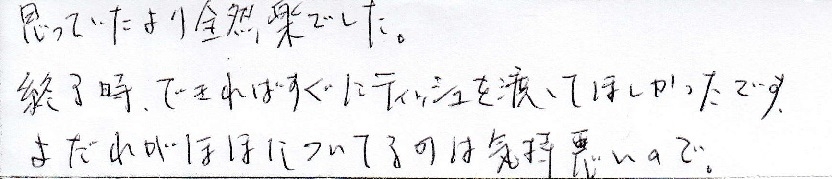 思っていたより全然楽でした。
終了時、できればすぐにティッシュを渡してほしかったです、
よだれがほほについてるのは気持悪いので。